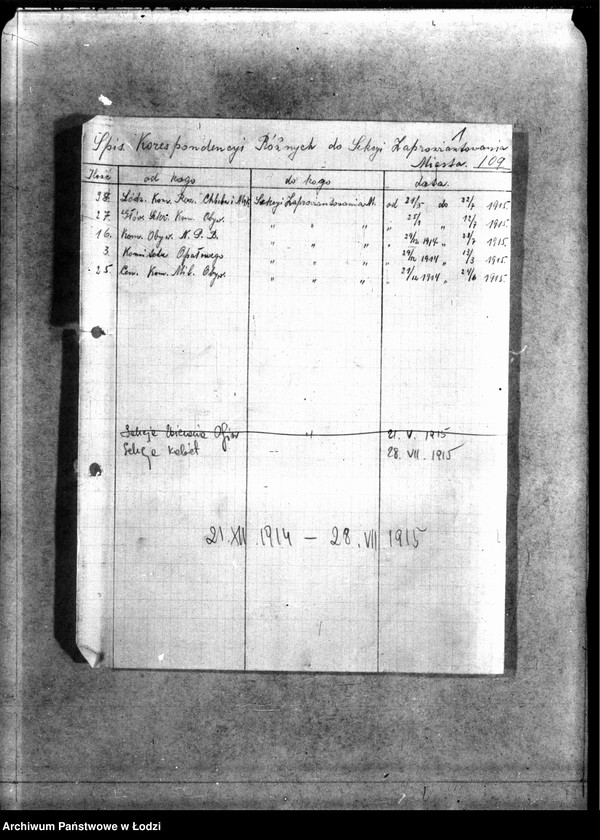 1
Spis Korespondencyi Różnych do Sekcyi Zaprowiantowania
Miasta. 109
Ilość od kogo do kogo data.
38. Łódz. Kom. Roz. Chleba i Mąk. Sekcyi Zaprowiantowania M. od 21/5 do 22/7 1915
27. Głów. Kom. Obyw. " " " " 25/1 " 12/7 1915.
16. Kom. Obyw. N. P. B. " " " " 29/12 1914 " 28/7 1915.
3. Komitetu Opałowego " " " " 29/12 1914 " 13/3 1915.
25. Cen. Kom. Mil. Obyw. " " " " 21/12 1914 " 24/6 1915.
Sekcja Zbierania Ofiar " 21. V. 1915
Sekcja Kobiet 28. VII. 1915
21. XII. 1914 — 28. VII 1915
Archiwum Państwowe w Łodzi